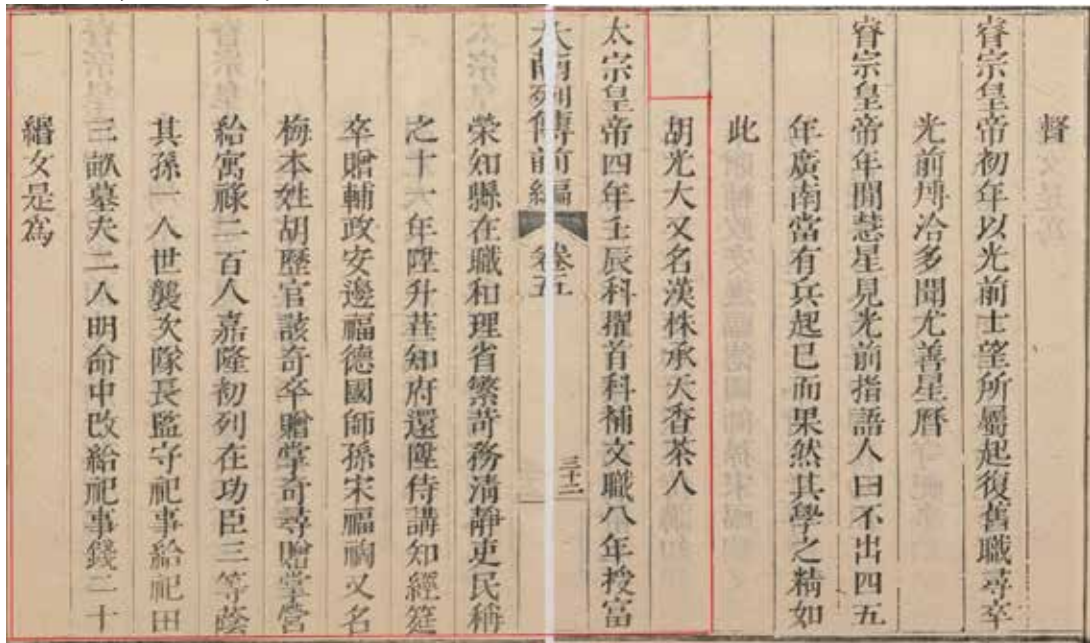 督
睿宗皇帝初年以光前士望所屬起復舊職尋卒
光前博洽多聞尤善星曆
睿宗皇帝年間彗星見光前指語人曰不出四五
年廣南當有兵起已而果然其學之精如
此
胡光大又名漢株承天香茶人
太宗皇帝四年壬辰科擢首科補文職八年授富
大南列傳前編 卷五 三十二
榮知縣在職和理省繁苛務清靜吏民稱
之十一年陞升華知府還陞侍講知經筵
卒贈輔政安邊福德國師孫宋福禍又名
梅本姓胡歷官該奇卒贈掌奇尋贈掌營
給寓祿二百人嘉隆初列在功臣三等蔭
其孫一人世襲次隊長監守祀事給祀田
三畝墓夫二人明命中改給祀事錢二十
緡女是為